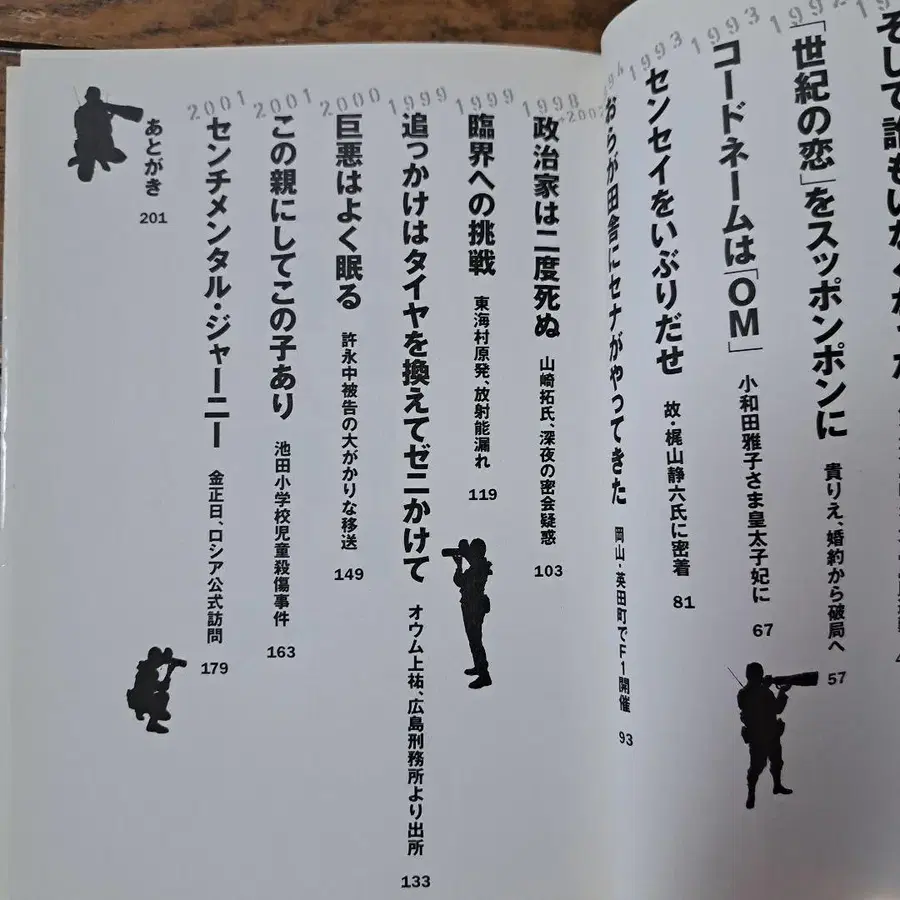 そして誰もいなくなった
1992
「世紀の恋」をスッポンポンに
貴りえ、婚約から破局へ
57
1993
コードネームは「OM」
小和田雅子さま皇太子妃に
67
1993
センセイをいぶりだせ
故・梶山静六氏に密着
81
おらが田舎にセナがやってきた
岡山・英田町でF1開催
93
1998
政治家は二度死ぬ
山崎拓氏、深夜の密会疑惑
103
1999
臨界への挑戦
東海村原発、放射能漏れ
119
1999
追っかけはタイヤを換えてゼニかけて
オウム上祐、広島刑務所より出所
133
2000
巨悪はよく眠る
許永中被告の大がかりな移送
149
2001
この親にしてこの子あり
池田小学校児童殺傷事件
163
2001
センチメンタル・ジャーニー
金正日、ロシア公式訪問
179
あとがき
201